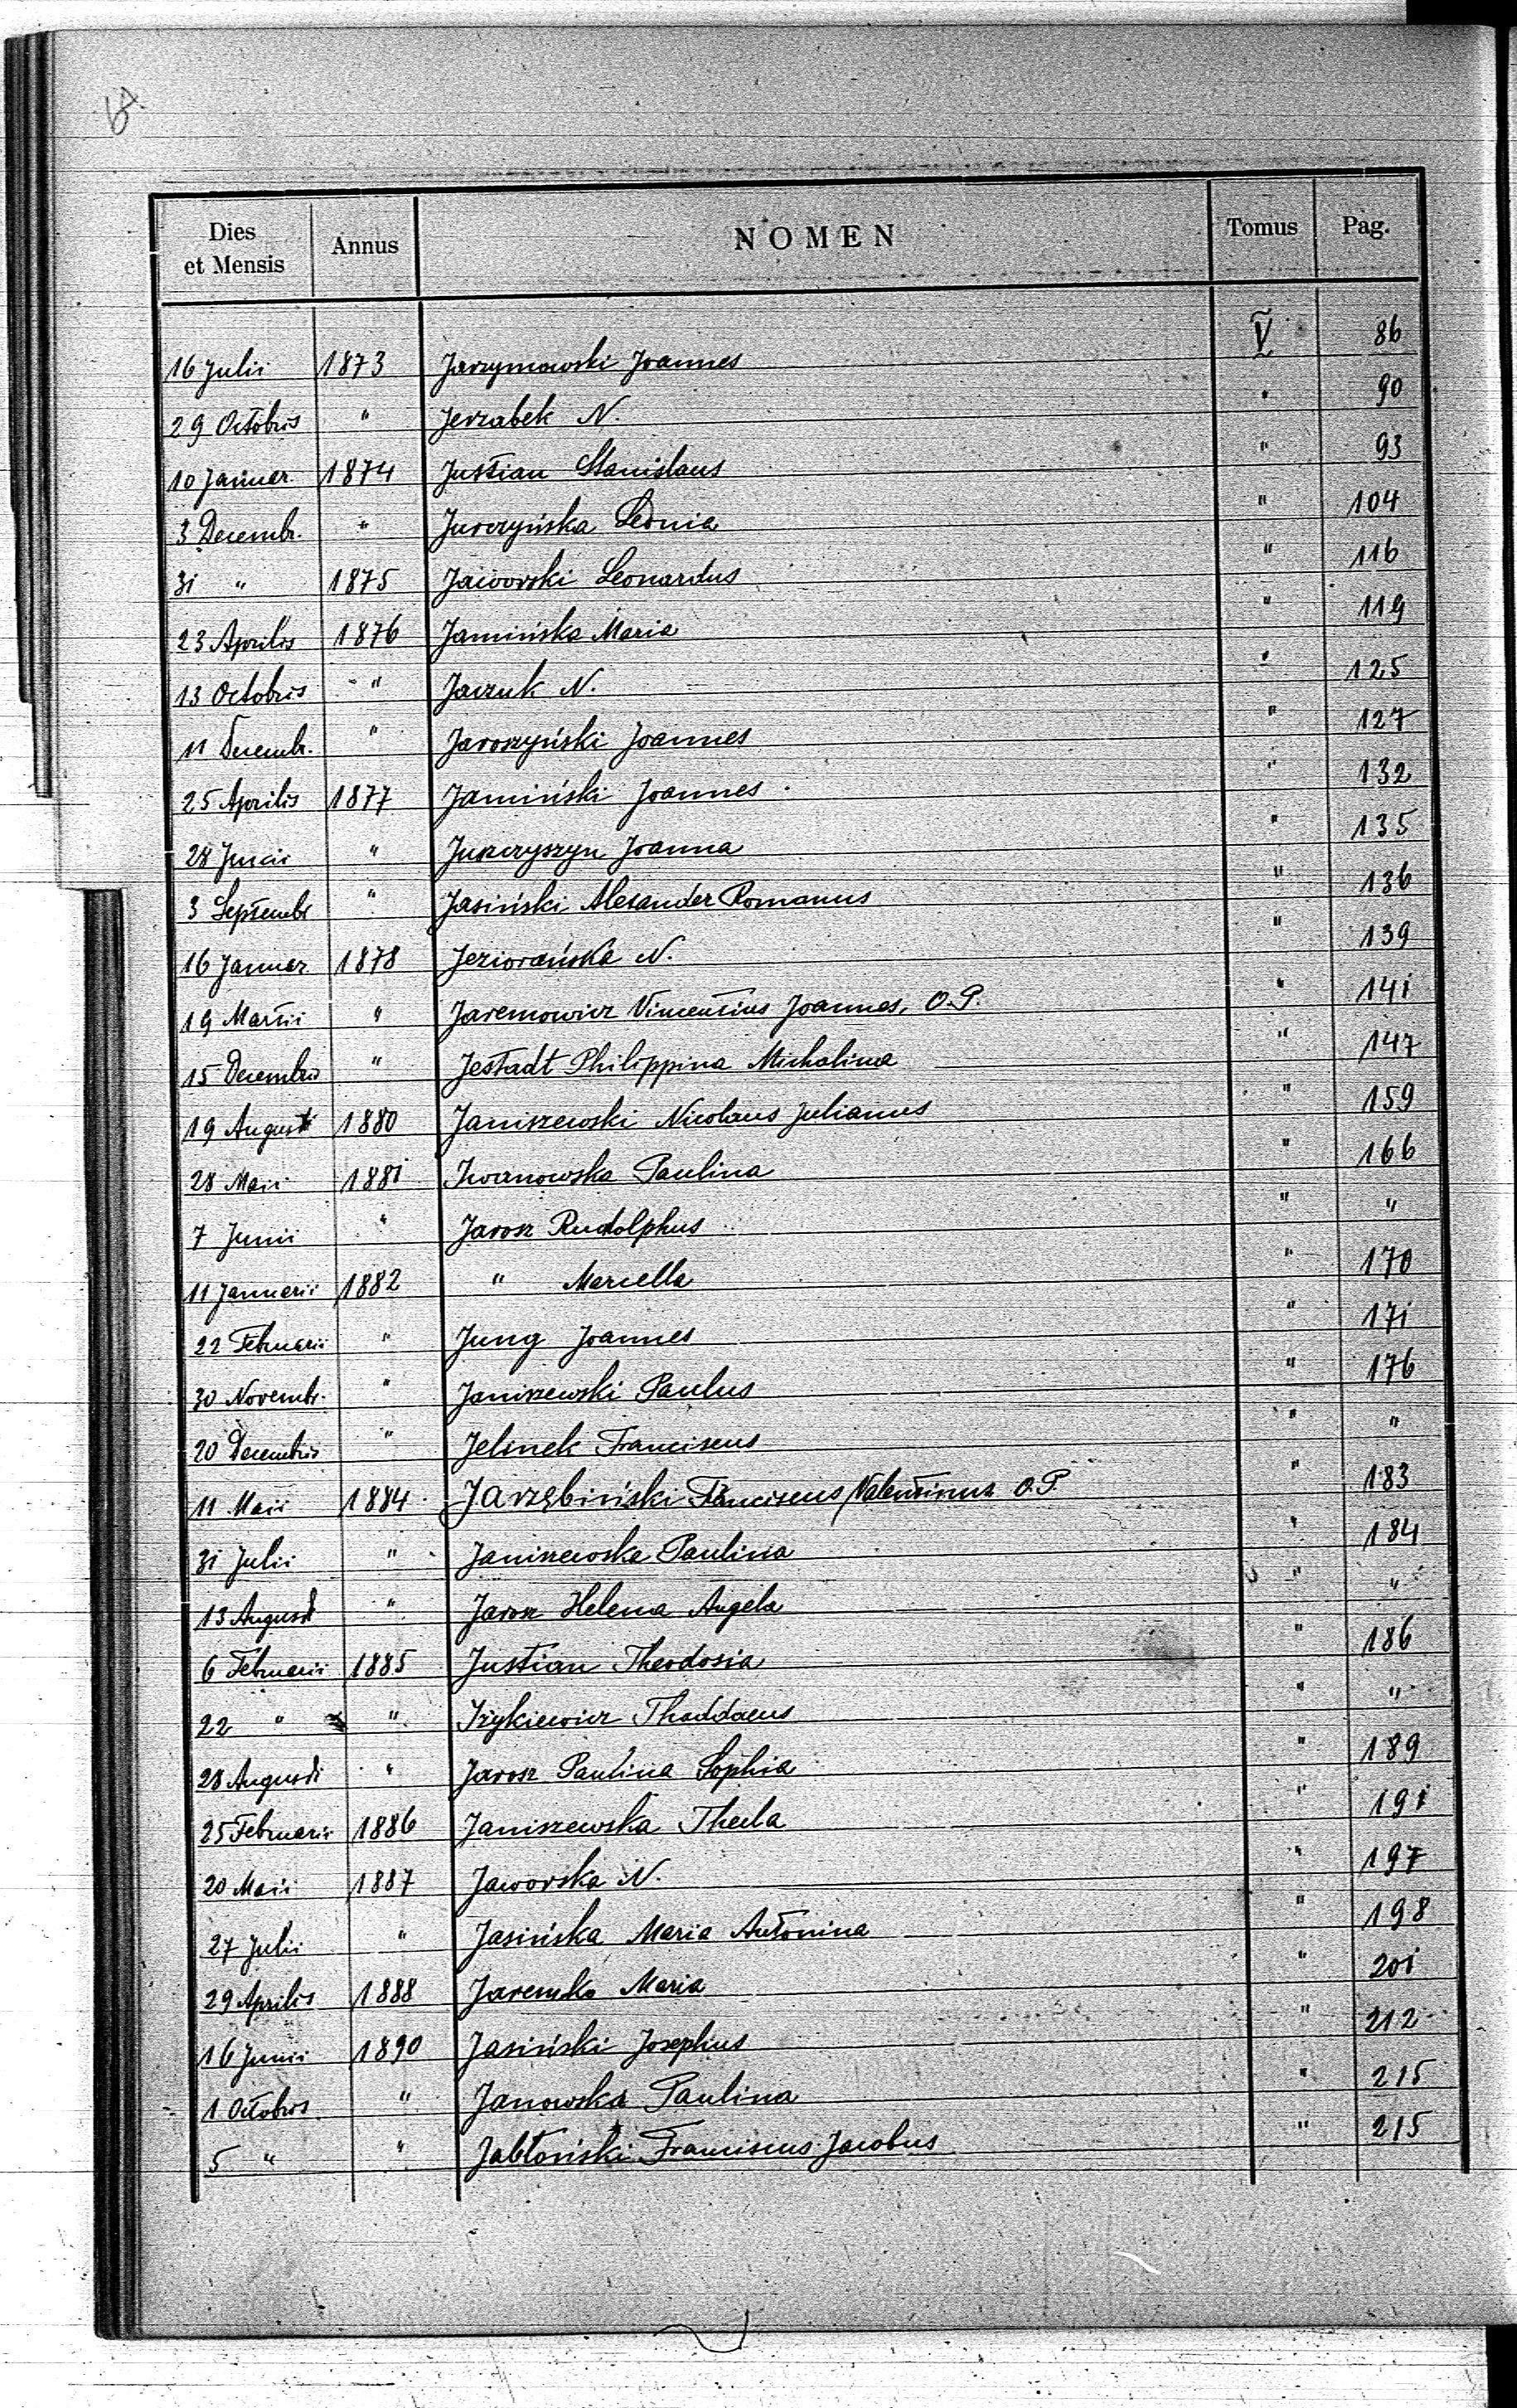 64.
Dies et Mensis | Annus | NOMEN | Tomus | Pag.
16 Julii | 1873 | Jarzymowski Joannes | V | 86
29 Octobris | " | Jerzabek N. | " | 90
10 Januar. | 1874 | Justian Stanislaus | " | 93
3 Decembr. | " | Jurczyńska Leonia | " | 104
31 " | 1875 | Jaworski Leonardus | " | 116
23 Aprilis | 1876 | Jamińska Maria | " | 119
13 Octobris | " | Jaczuk N. | " | 125
11 Decembr. | " | Jaroszyński Joannes | " | 127
25 Aprilis | 1877 | Jamiński Joannes | " | 132
28 Junii | " | Juszczyszyn Joanna | " | 135
3 Septembr | " | Jasiński Alexander Romanus | " | 136
16 Januar. | 1878 | Jeziorańska N. | " | 139
19 Martii | " | Jaremowicz Vincentius Joannes, O.P. | " | 141
15 Decembris | " | Jestadt Philippina Michalina | " | 147
19 Augusti | 1880 | Janiszewski Nicolaus Julianus | " | 159
28 Maii | 1881 | Iwanowska Paulina | " | 166
7 Junii | " | Jarosz Rudolphus | " | "
11 Januarii | 1882 | " Marcella | " | 170
22 Februarii | " | Jung Joannes | " | 171
30 Novembr. | " | Janiszewski Paulus | " | 176
20 Decembris | " | Jelinek Franciscus | " | "
11 Maii | 1884 | Jarzębiński Franciscus Valentinus O.P. | " | 183
31 Julii | " | Janiszewska Paulina | " | 184
13 Augusti | " | Jarosz Helena Angela | " | "
6 Februarii | 1885 | Justian Theodosia | " | 186
22 " | " | Iżykiewicz Thaddaeus | " | "
28 Augusti | " | Jarosz Paulina Sophia | " | 189
25 Februarii | 1886 | Janiszewska Thecla | " | 191
20 Maii | 1887 | Jaworska N. | " | 197
27 Julii | " | Jasińska Maria Antonina | " | 198
29 Aprilis | 1888 | Jaremko Maria | " | 201
16 Junii | 1890 | Jasiński Josephus | " | 212
1 Octobris | " | Janowska Paulina | " | 215
5 " | " | Jabłoński Franciscus Jacobus | " | 215